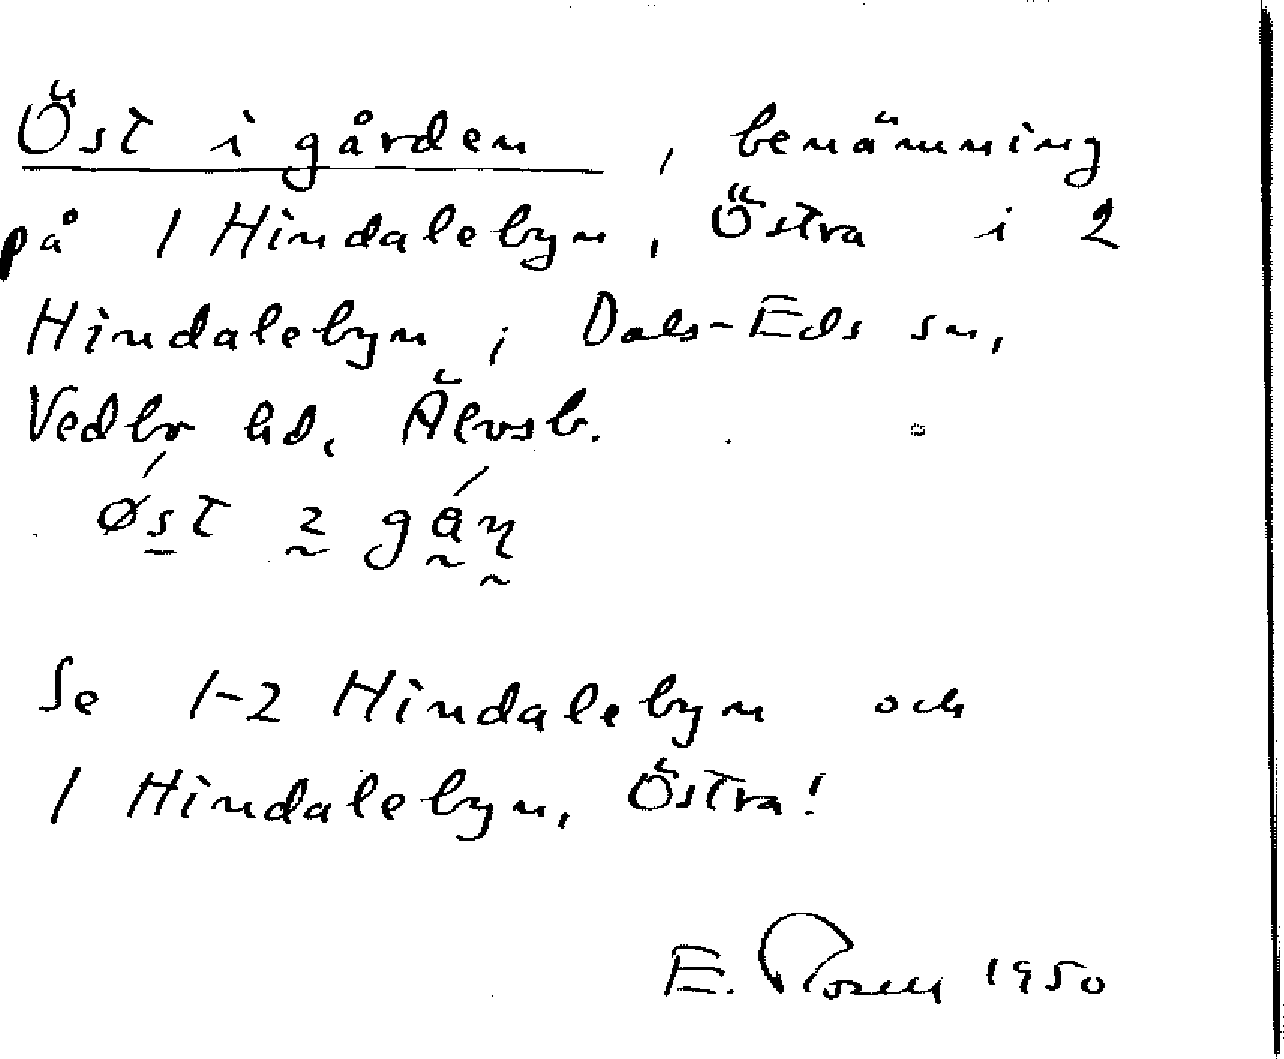 Öst i gården, benämning
på 1 Hindalebyn, Östra i 2
Hindalebyn, Dals-Eds sn,
Vedbo hd, Älvsb.
Se 1-2 Hindalebyn och
1 Hindalebyn, Östra!
E. Rosell 1950